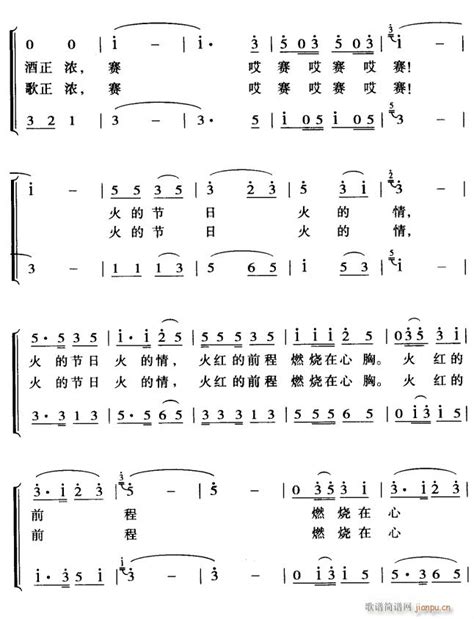 0 0 i - | i· 3 | 5 03 5 03 | i -
酒正浓，赛 哎赛哎赛哎赛！
歌正浓，赛 哎赛哎赛哎赛！
3 2 1 3 - | 3· 5 | i 05 i 05 | 3 -
i - | 5 5 3 5 | 3 2 3 | 5 3 i | 3 -
火的节日 火的情，
火的节日 火的情，
3 - | 1 1 1 3 | 6 5 6 | i 3 5 | i -
5·5 3 5 | i·i 2 5 | 5 5 3 5 | i i 2 5 | 0 3 5 3
火的节日 火的情， 火红的前程 燃烧在心胸。 火红的
火的节日 火的情， 火红的前程 燃烧在心胸。 火红的
3·3 1 3 | 5·5 6 5 | 3 3 1 3 | 5 5 6 5 | 0 i 3 i
3·i 2 3 | 5· - | 5 - | 0 3 5 3 | i 2 3
前 程 燃烧在心
前 程 燃烧在心
i·3 5 i | 5· - | 5 - | 0 i 3 i | 3 5 i
歌谱简谱网 jianpu.cn